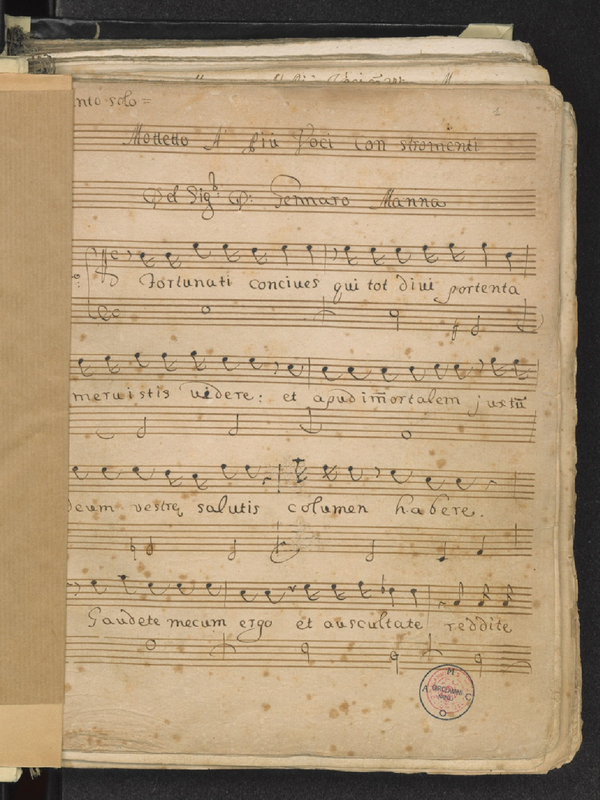 nto solo =
1
Mottetto A più Voci con stromenti
Del Sig.r D: Gennaro Manna
Fortunati conciues qui tot diui portenta
meruistis videre: et apud im̃ortalem justũ
deum vestrę salutis columen habere.
Gaudete mecum ergo et auscultate reddite
M
A GIROLAMINI C
O